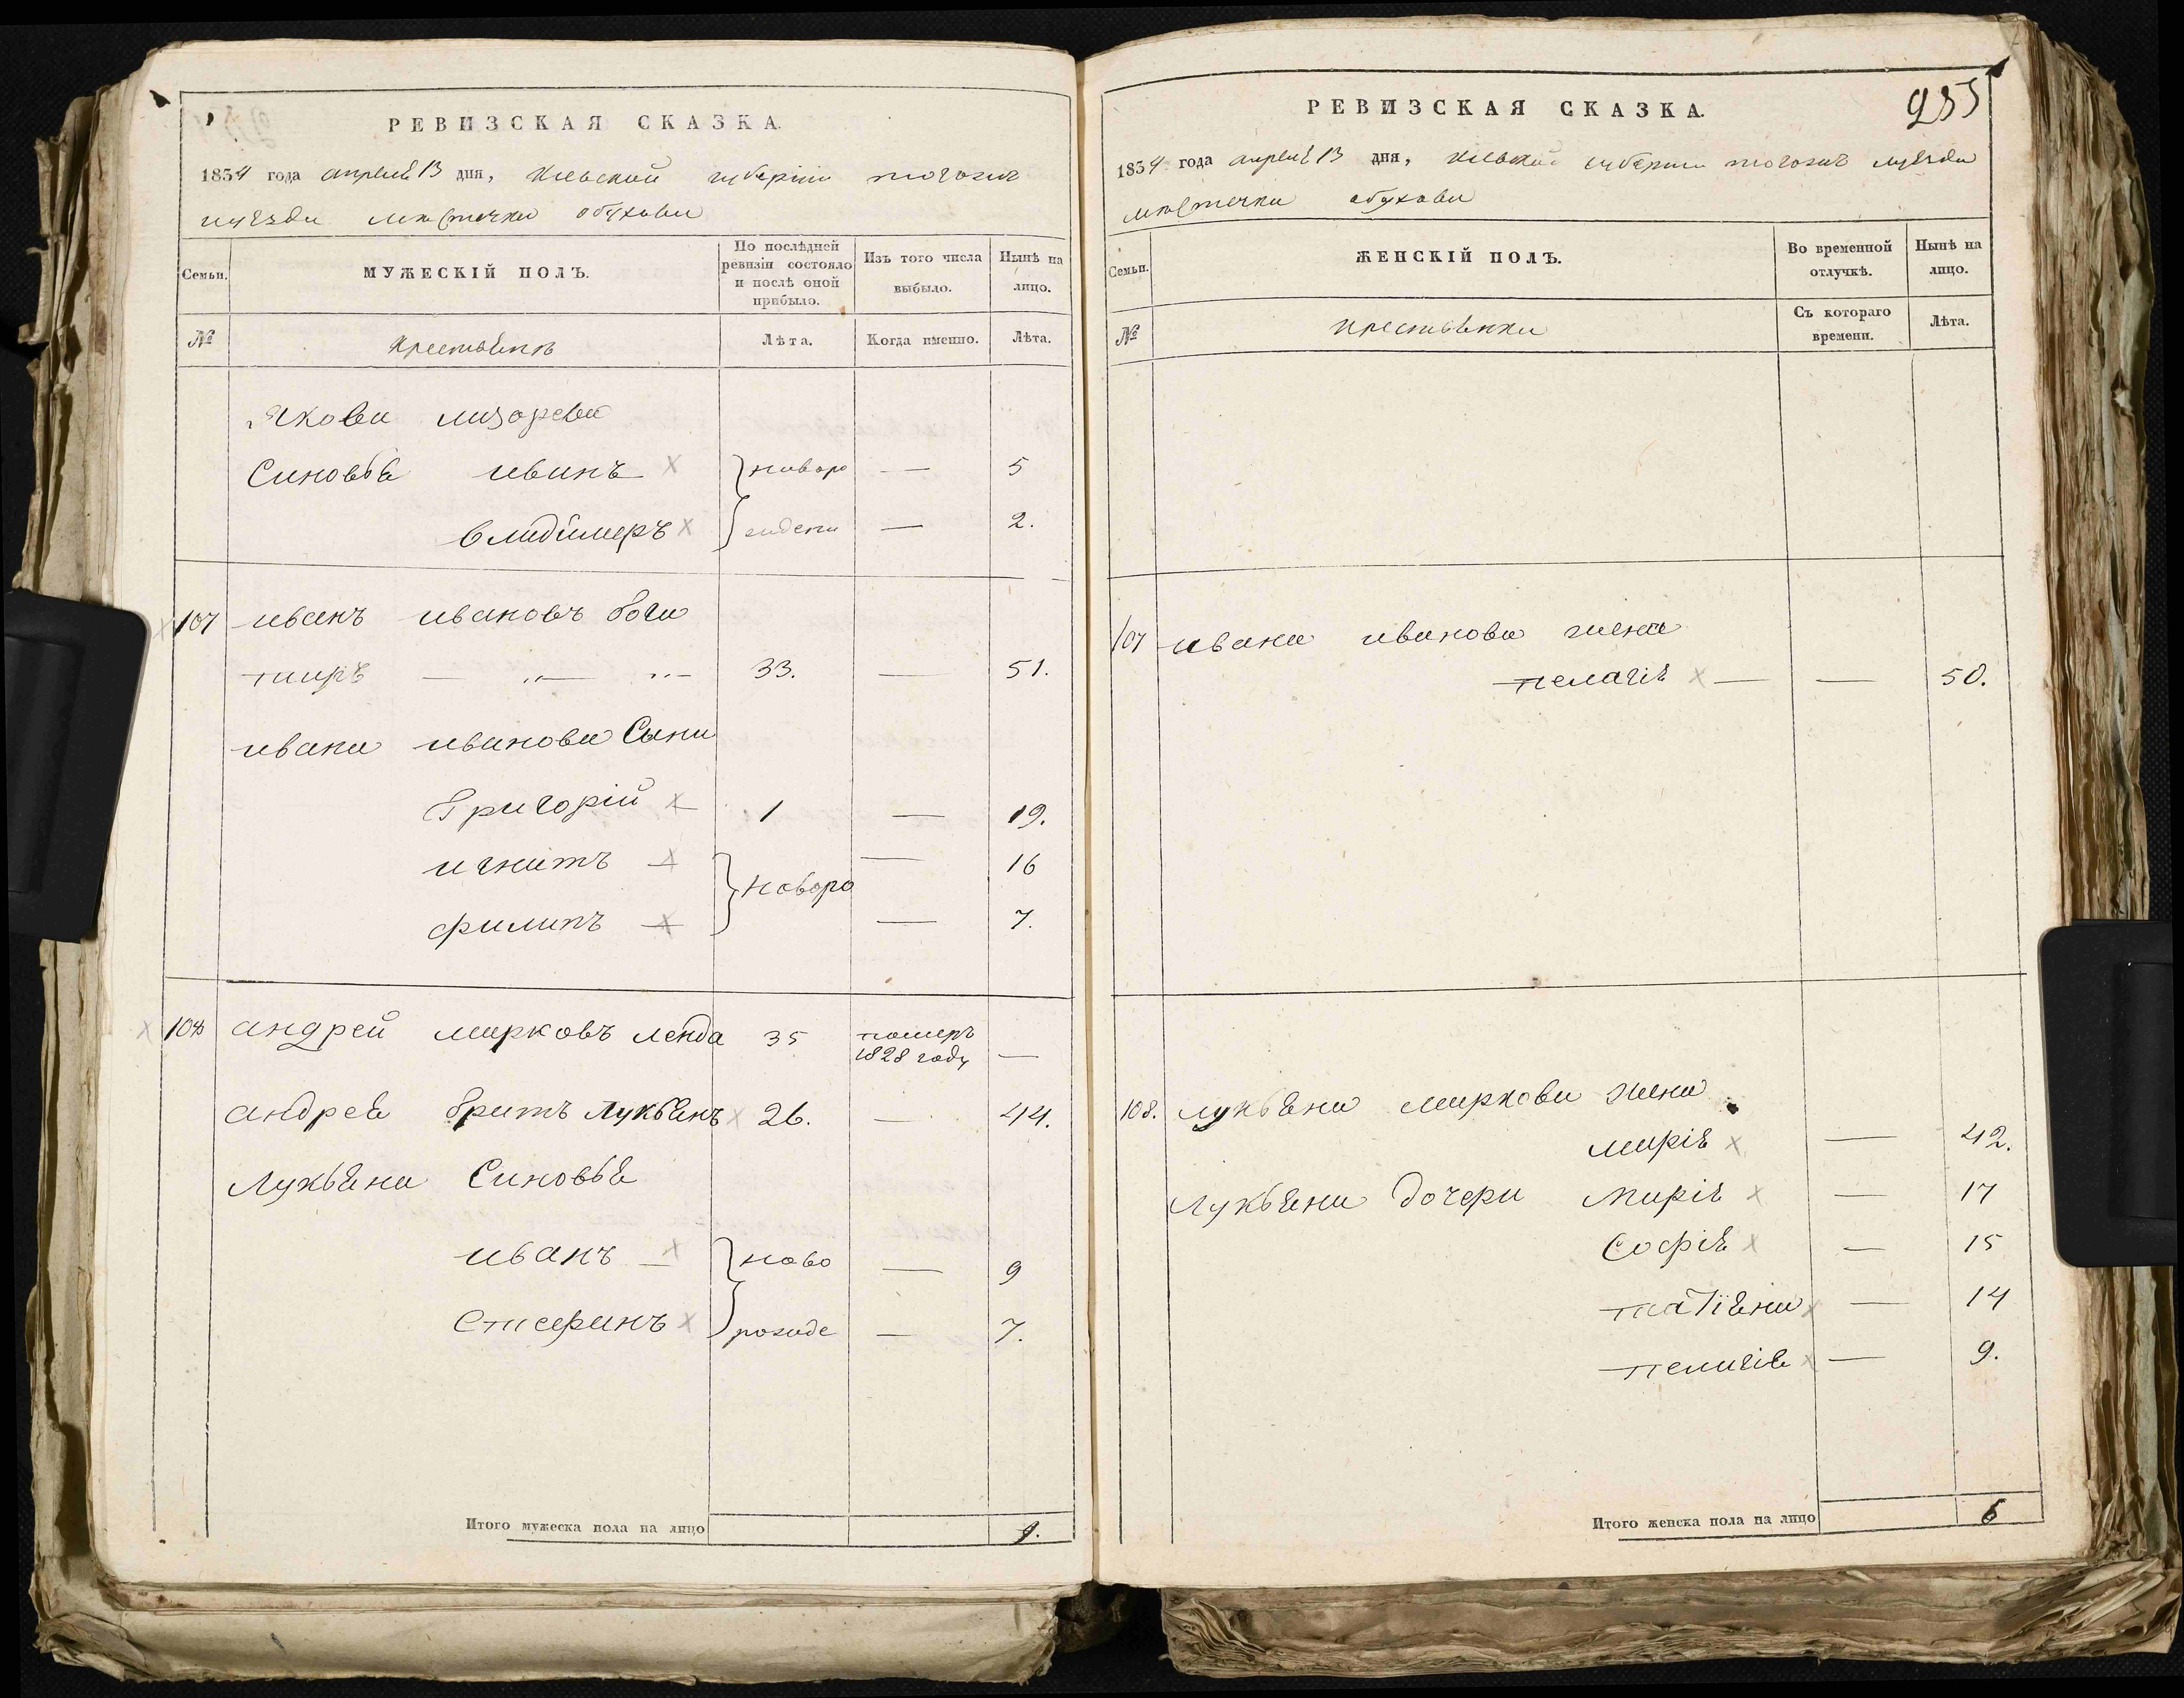 РЕВИЗСКАЯ СКАЗКА.
1834 года апреля 13 дня, Киевской губерніи тогожъ
уѣзда местечка обухова
Семьи.
МУЖЕСКІЙ ПОЛЪ.
По послѣдней ревизіи состояло и послѣ оной прибыло.
Изъ того числа выбыло.
Нынѣ на лицо.
№
Крестьянъ
Лѣта.
Когда именно.
Лѣта.
Якова лазарева
Синовья иванъ x новоро — 5
владимеръ x жденн — 2.
107 иванъ ивановъ бога
тиръ — „ — „ — 33. — 51.
ивана иванова Сыни
Григорій x 1 — 19.
игнатъ x новоро — 16
филипъ x — 7.
108 андрей марковъ ленда 35 померъ 1828 году —
андрея братъ Лукьянъ x 26. — 44.
Лукьяна Синовья
иванъ x ново — 9
Стефанъ x рожде — 7.
Итого мужеска пола на лицо 9.
РЕВИЗСКАЯ СКАЗКА.
955
1834 года апреля 13 дня, Киевской губерніи тогожъ уѣзда
местечка обухова
Семьи.
ЖЕНСКІЙ ПОЛЪ.
Во временной отлучкѣ.
Нынѣ на лицо.
№
Крестьянки
Съ котораго времени.
Лѣта.
107 ивана иванова жена
пелагія x — — 50.
108. лукьяна маркова жена
марія x — 42.
Лукьяна дочери марія x — 17
Софія x — 15
татіяна x — 14
пелагія x — 9.
Итого женска пола на лицо 6